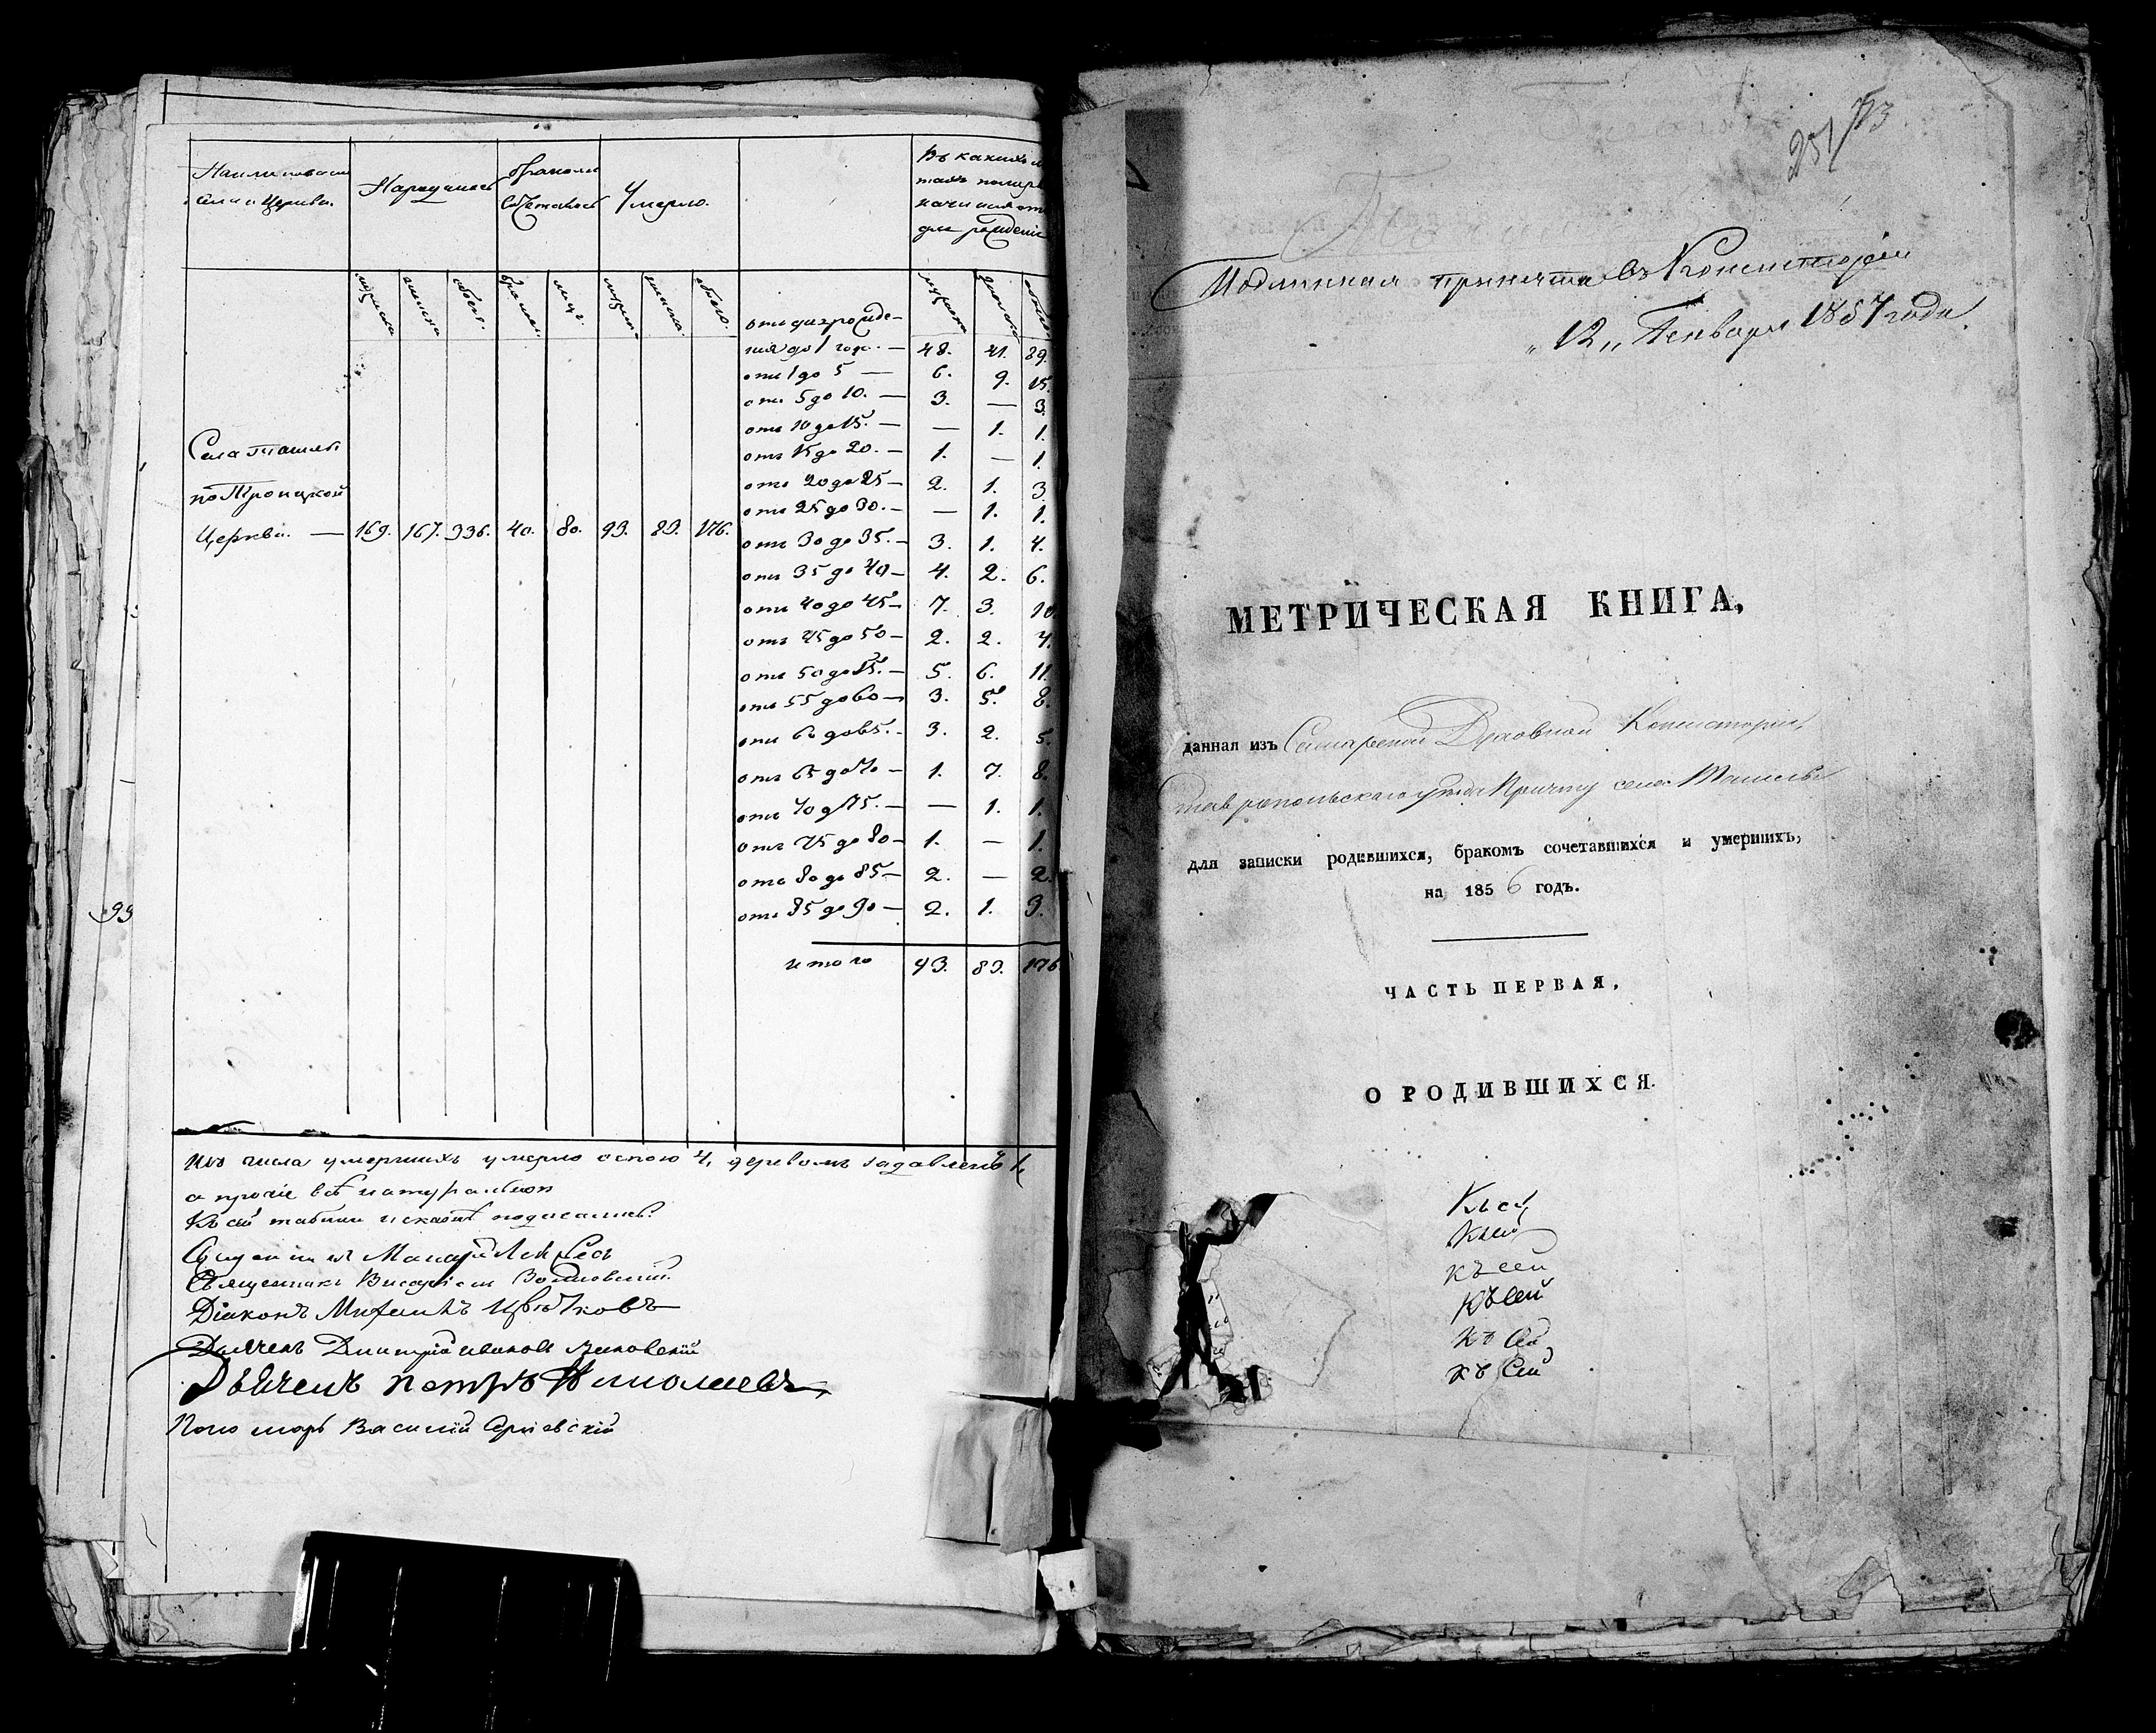 Наименованіе
села и Церкви.
Народилось
браком
Сочеталось
Умерло.
Въ какихъ
начиная от
дня рожденія
мужеска
женска
обоего.
мужеск.
женска.
обоего.
отъ дня рожде-
нія до 1 года. — 48. 41. 89.
отъ 1 до 5 — 6. 9. 15.
отъ 5 до 10. — 3. — 3.
отъ 10 до 15. — — 1. 1.
отъ 15 до 20. — 1. — 1.
отъ 20 до 25 — 2. 1. 3
отъ 25 до 30. — — 1. 1.
Села Ташлы
по Троицкой
Церкви. — 169. 167. 336. 40. 80. 93. 83. 176.
отъ 30 до 35. — 3. 1. 4.
отъ 35 до 40 — 4. 2. 6.
отъ 40 до 45 — 7. 3. 10
отъ 45 до 50 — 2. 2. 4.
отъ 50 до 55. — 5. 6. 11.
отъ 55 до 60 — 3. 5. 8.
отъ 60 до 65. — 3. 2. 5.
отъ 65 до 70 — 1. 7. 8.
отъ 70 до 75. — — 1. 1.
отъ 75 до 80 — 1. — 1.
отъ 80 до 85 — 2. — 2.
отъ 85 до 90 — 2. 1. 3.
итого 93. 83. 176
Изъ числа умершихъ умерло оспою 4, деревомъ задавленъ 1,
а прочіе всѣ натурально
Къ сей табели
Священникъ
Діаконъ Цвѣтковъ
Дьячекъ Дмитрій Ивановъ
Дьячекъ Петръ Николаевъ
Пономарь Василій
251
Подлинная принята въ Консисторіи
"12" Генваря 1857 года.
МЕТРИЧЕСКАЯ КНИГА,
данная изъ Самарской Духовной Консисторіи,
Ставропольскаго уѣзда Причту села Ташлы
для записки родившихся, бракомъ сочетавшихся и умершихъ,
на 1856 годъ.
ЧАСТЬ ПЕРВАЯ,
О РОДИВШИХСЯ.
Къ сей
Къ сей
Къ сей
Къ сей
Къ сей
Къ сей